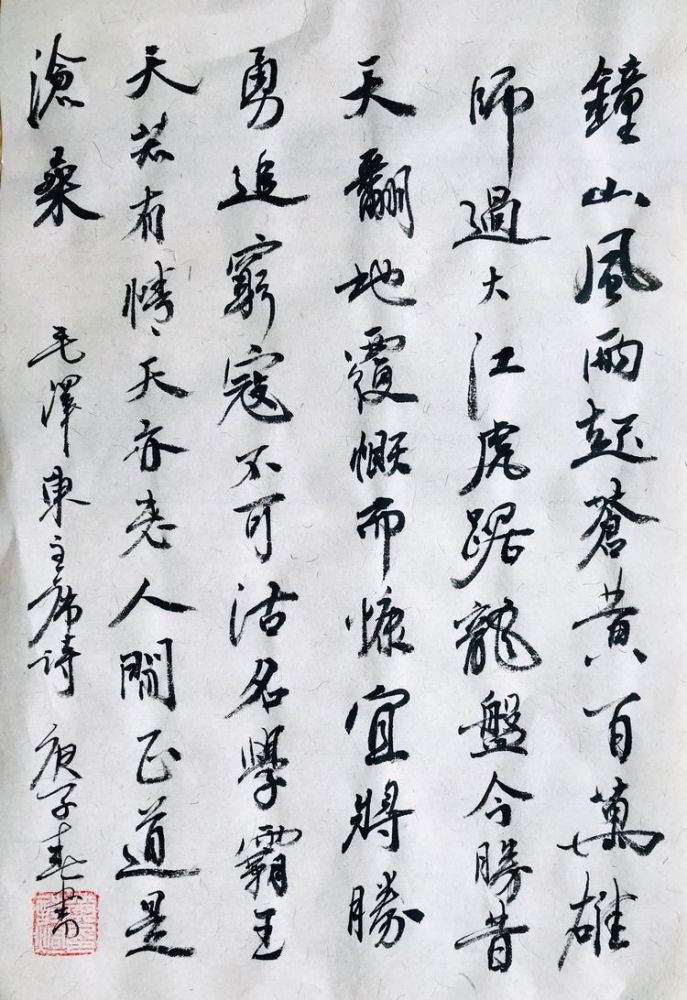 鐘山風雨起蒼黃百萬雄
師過大江虎踞龍盤今勝昔
天翻地覆慨而慷宜將勝
勇追窮寇不可沽名學霸王
天若有情、天亦老人間正道是
滄桑 毛澤東主席詩 庚子春書